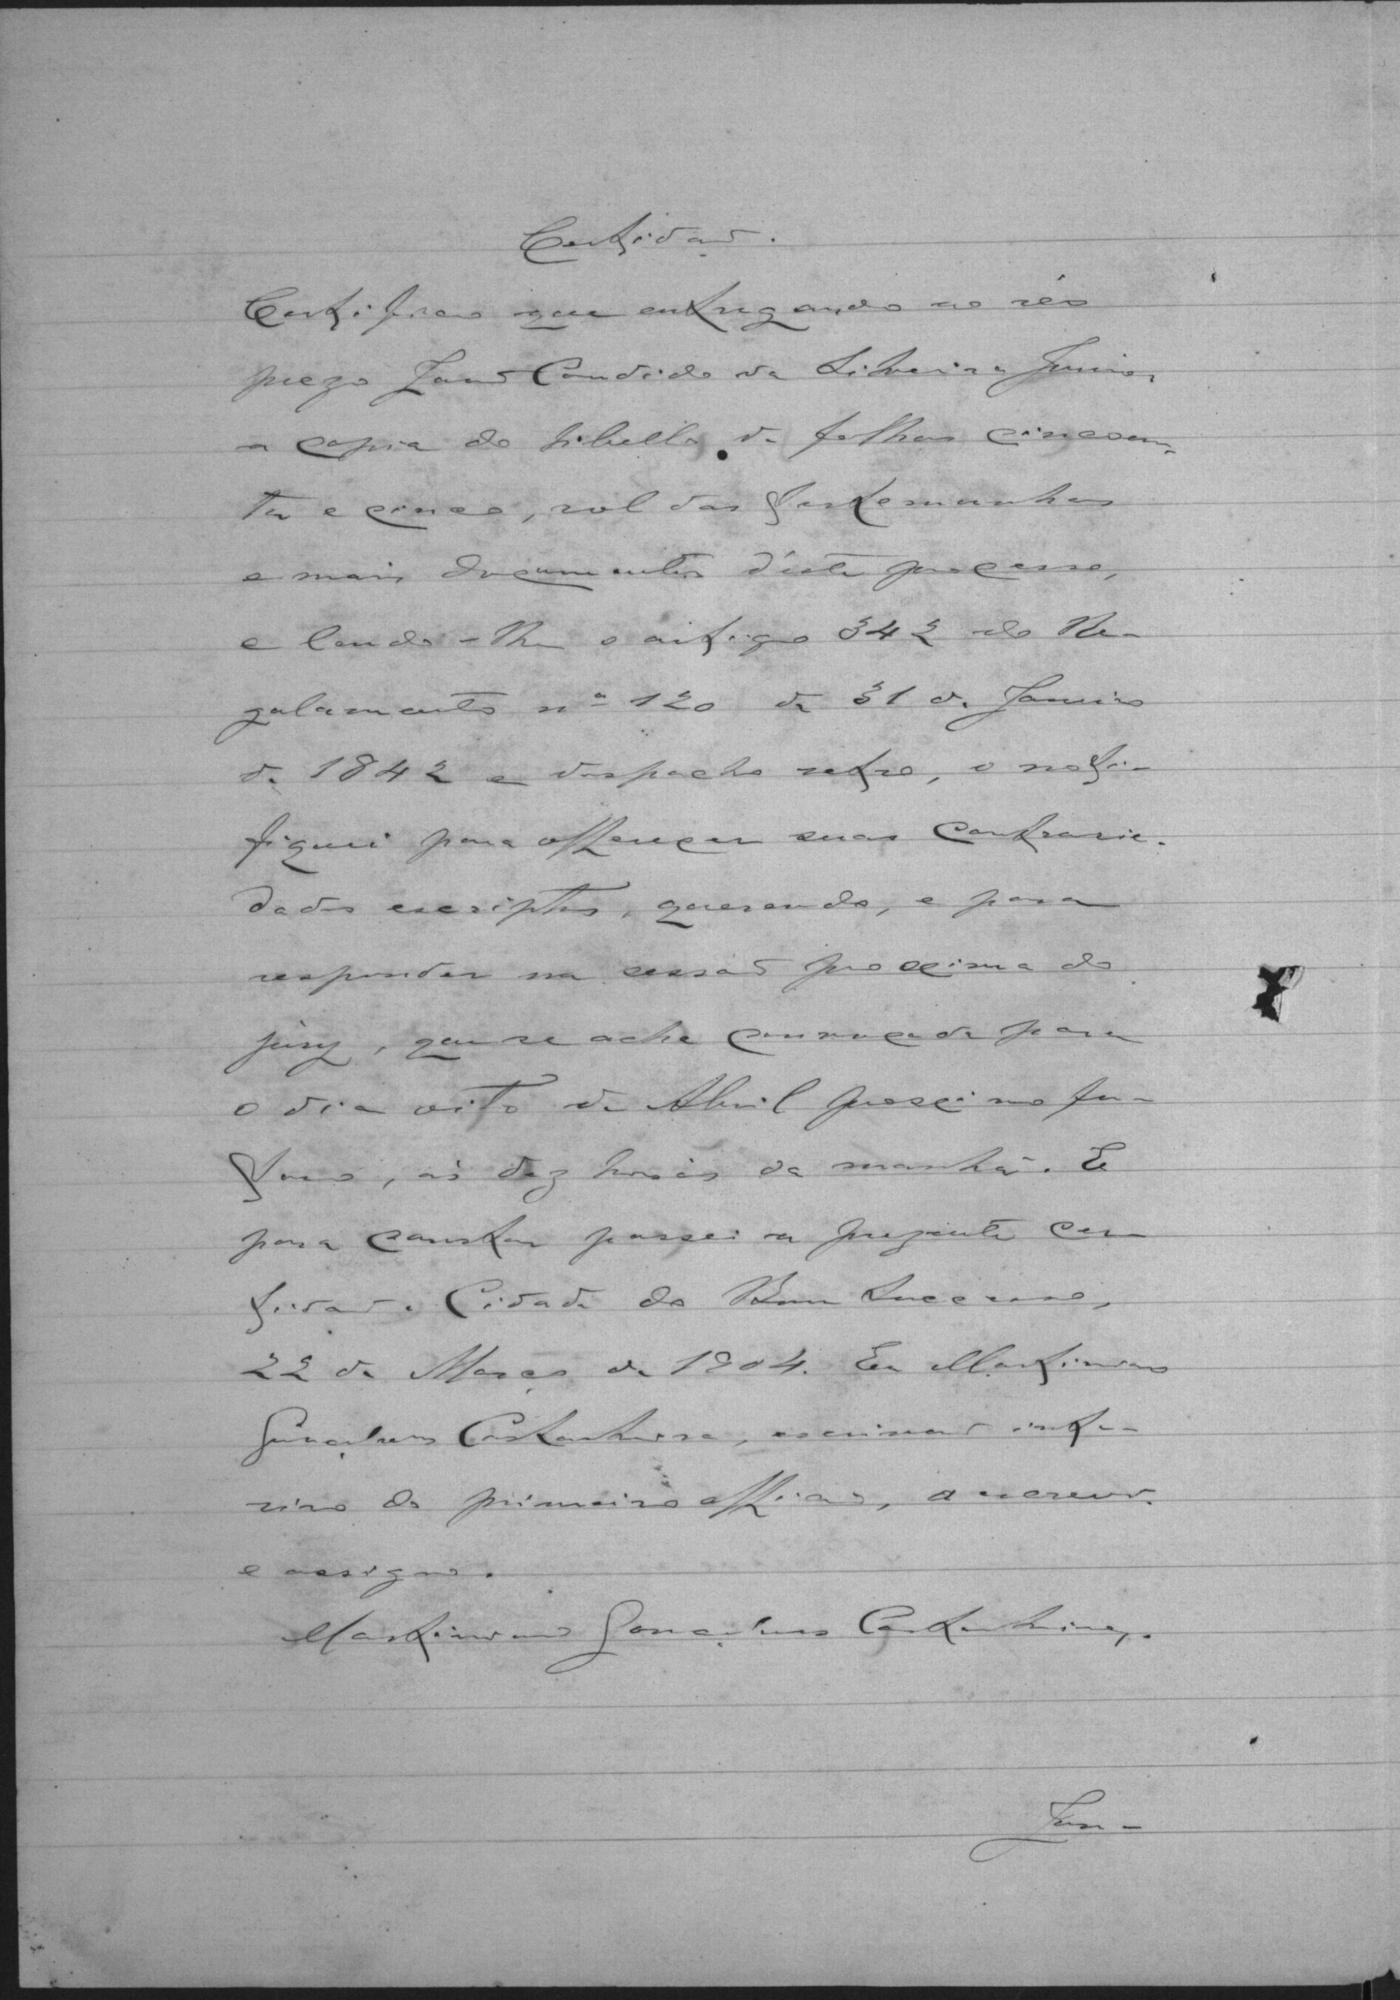 Certidaõ.
Certifico que entregando ao réo
prezo João Candido da Silveira Junior
a copia do libello de folhas cincoen-
ta e cinco, rol das testemunhas
e mais documentos d'este processo,
e lendo-lhe o artigo 342 do Re-
gulamento nº 120 de 31 de Janeiro
de 1842 e despacho retro, o noti-
fiquei para offerecer suas contrarie-
dades escriptas, querendo, e para
responder na sessaõ proxima do
jury, que se acha convocada para
o dia oito de Abril proximo fu-
turo, ás dez horas da manhã. E
para constar passei a prezente cer-
tidaõ. Cidade do Bom Successo,
22 de Março de 1904. Eu Martiniano
Gonçalves Castanheira, escrivaõ inte-
rino do primeiro officio, a escrevi
e assigno.
Martiniano Gonçalves Castanheira.
Jun-